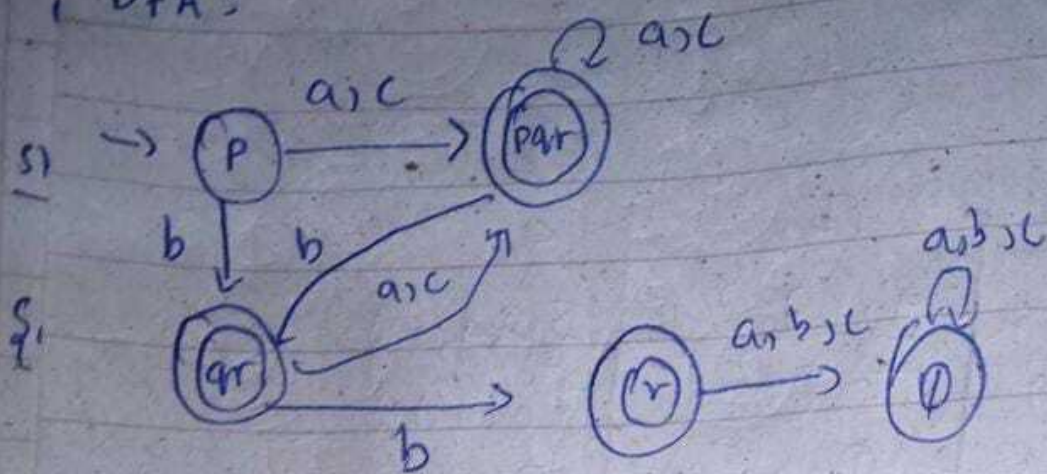 DFA:
a,c
a,c
→ p
pqr
b
b
a,c
a,b,c
qr
a,b,c
r
φ
b